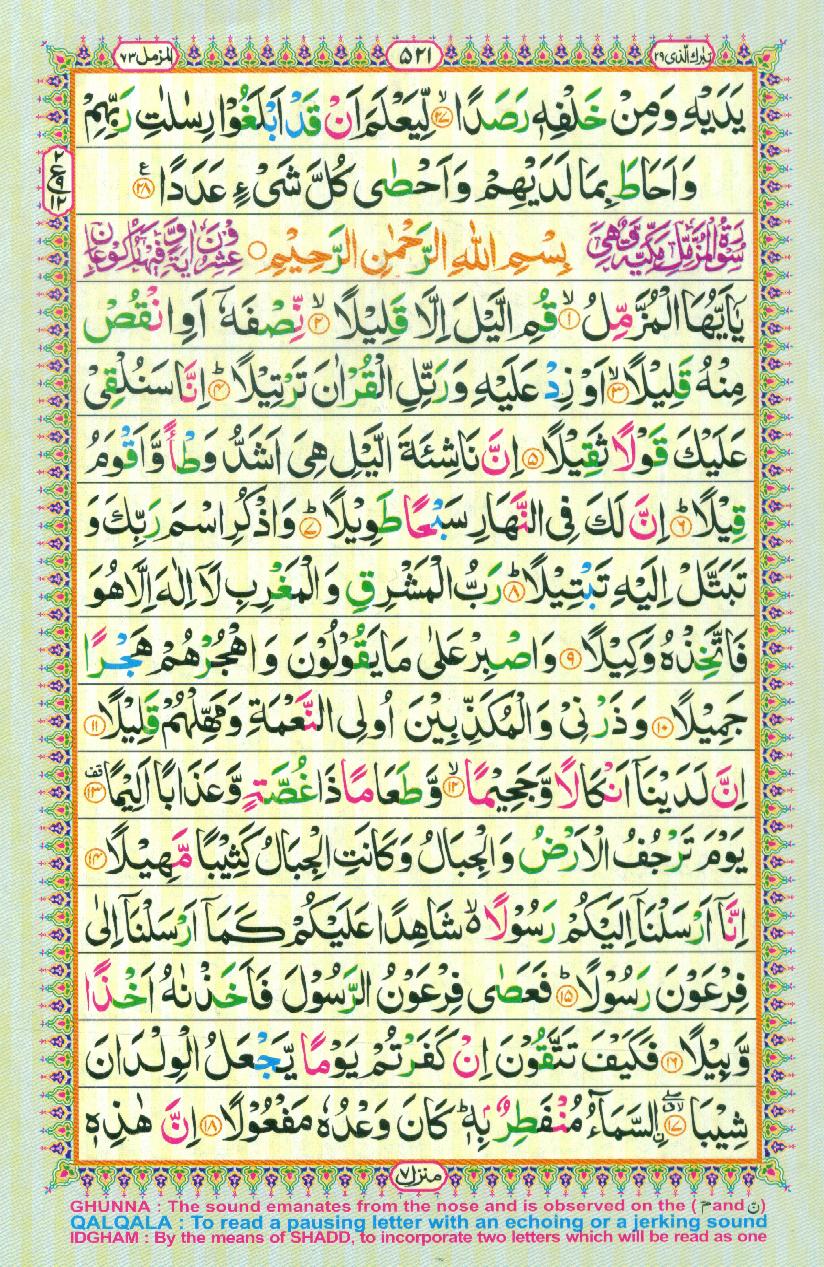 تبٰرك الّذی ٢٩
٥٢١
المزمل ٧٣
یَدَیْهِ وَمِنْ خَلْفِهٖ رَصَدًا ۙ﴿۲۷﴾ لِّیَعْلَمَ اَنْ قَدْ اَبْلَغُوْا رِسٰلٰتِ رَبِّهِمْ
وَاَحَاطَ بِمَا لَدَیْهِمْ وَاَحْصٰی كُلَّ شَیْءٍ عَدَدًا ﴿۲۸﴾ ع
٢ ع ٩ ١٢
سُوْرَةُ الْمُزَّمِّلِ مَكِّیَّةٌ وَّهِیَ بِسْمِ اللهِ الرَّحْمٰنِ الرَّحِیْمِ ○ عِشْرُوْنَ اٰیَةً وَّفِیْهَا رُكُوْعَانِ
یٰۤاَیُّهَا الْمُزَّمِّلُ ۙ﴿۱﴾ قُمِ الَّیْلَ اِلَّا قَلِیْلًا ۙ﴿۲﴾ نِّصْفَهٗۤ اَوِ انْقُصْ
مِنْهُ قَلِیْلًا ۙ﴿۳﴾ اَوْ زِدْ عَلَیْهِ وَرَتِّلِ الْقُرْاٰنَ تَرْتِیْلًا ؕ﴿۴﴾ اِنَّا سَنُلْقِیْ
عَلَیْكَ قَوْلًا ثَقِیْلًا ﴿۵﴾ اِنَّ نَاشِئَةَ الَّیْلِ هِیَ اَشَدُّ وَطْاً وَّاَقْوَمُ
قِیْلًا ؕ﴿۶﴾ اِنَّ لَكَ فِی النَّهَارِ سَبْحًا طَوِیْلًا ؕ﴿۷﴾ وَاذْكُرِ اسْمَ رَبِّكَ وَ
تَبَتَّلْ اِلَیْهِ تَبْتِیْلًا ؕ﴿۸﴾ رَبُّ الْمَشْرِقِ وَالْمَغْرِبِ لَاۤ اِلٰهَ اِلَّا هُوَ
فَاتَّخِذْهُ وَكِیْلًا ﴿۹﴾ وَاصْبِرْ عَلٰی مَا یَقُوْلُوْنَ وَاهْجُرْهُمْ هَجْرًا
جَمِیْلًا ﴿۱۰﴾ وَذَرْنِیْ وَالْمُكَذِّبِیْنَ اُولِی النَّعْمَةِ وَمَهِّلْهُمْ قَلِیْلًا ﴿۱۱﴾
اِنَّ لَدَیْنَاۤ اَنْكَالًا وَّجَحِیْمًا ۙ﴿۱۲﴾ وَّطَعَامًا ذَا غُصَّةٍ وَّعَذَابًا اَلِیْمًا ﴿۱۳﴾ قف
یَوْمَ تَرْجُفُ الْاَرْضُ وَالْجِبَالُ وَكَانَتِ الْجِبَالُ كَثِیْبًا مَّهِیْلًا ﴿۱۴﴾
اِنَّاۤ اَرْسَلْنَاۤ اِلَیْكُمْ رَسُوْلًا ۙ۬ شَاهِدًا عَلَیْكُمْ كَمَاۤ اَرْسَلْنَاۤ اِلٰی
فِرْعَوْنَ رَسُوْلًا ؕ﴿۱۵﴾ فَعَصٰی فِرْعَوْنُ الرَّسُوْلَ فَاَخَذْنٰهُ اَخْذًا
وَّبِیْلًا ﴿۱۶﴾ فَكَیْفَ تَتَّقُوْنَ اِنْ كَفَرْتُمْ یَوْمًا یَّجْعَلُ الْوِلْدَانَ
شِیْبَا ﴿۱۷﴾ السَّمَآءُ مُنْفَطِرٌۢ بِهٖ ؕ كَانَ وَعْدُهٗ مَفْعُوْلًا ﴿۱۸﴾ اِنَّ هٰذِهٖ
منزل ٧
GHUNNA : The sound emanates from the nose and is observed on the ( م and ن )
QALQALA : To read a pausing letter with an echoing or a jerking sound
IDGHAM : By the means of SHADD, to incorporate two letters which will be read as one